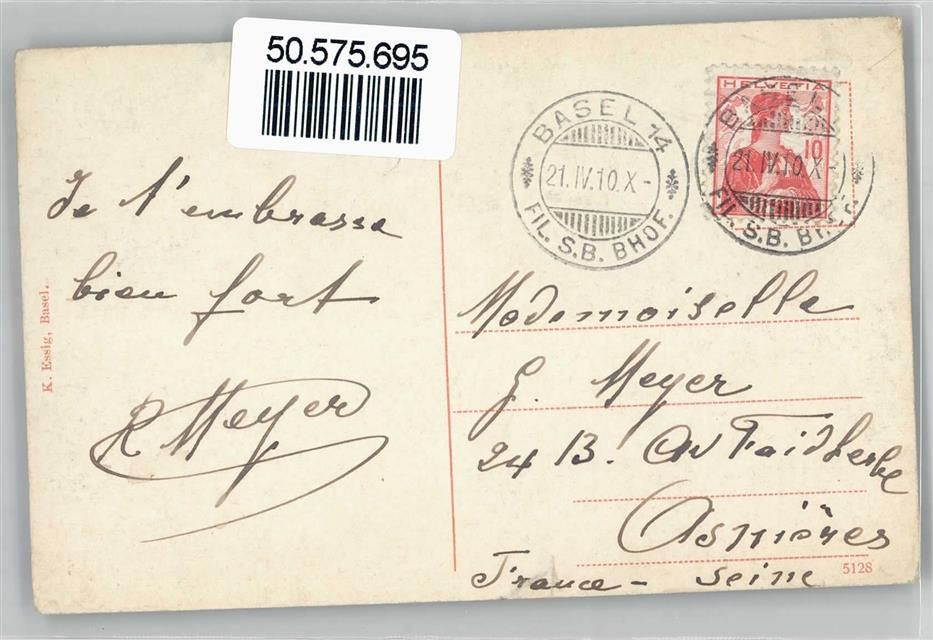 50.575.695
BASEL 14
21.IV.10.X-
FIL. S.B. BHOF.
HELVETIA
10
BASEL
21.IV.10.X-
FIL. S.B. BH
Je t'embrasse
bien fort
R Meyer
K. Essig, Basel.
Mademoiselle
G. Meyer
24 B. Av Faidherbe
Asnières
France - Seine
5128